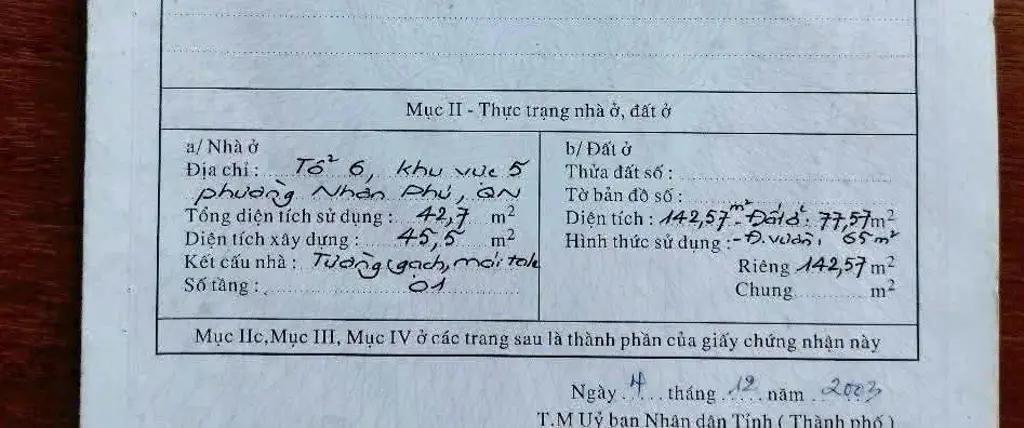 Mục II - Thực trạng nhà ở, đất ở
a/ Nhà ở
Địa chỉ : Tổ 6, khu vực 5
phường Nhơn Phú, QN
Tổng diện tích sử dụng : 42,7 m²
Diện tích xây dựng : 45,5 m²
Kết cấu nhà : Tường gạch, mái tole
Số tầng : 01
b/ Đất ở
Thửa đất số :
Tờ bản đồ số :
Diện tích : 142,57 m² - Đất ở : 77,57 m²
Hình thức sử dụng : - Đ. vườn : 65 m²
Riêng 142,57 m²
Chung m²
Mục IIc,Mục III, Mục IV ở các trang sau là thành phần của giấy chứng nhận này
Ngày 4 tháng 12 năm 2003
T.M Uỷ ban Nhân dân Tỉnh ( Thành phố )